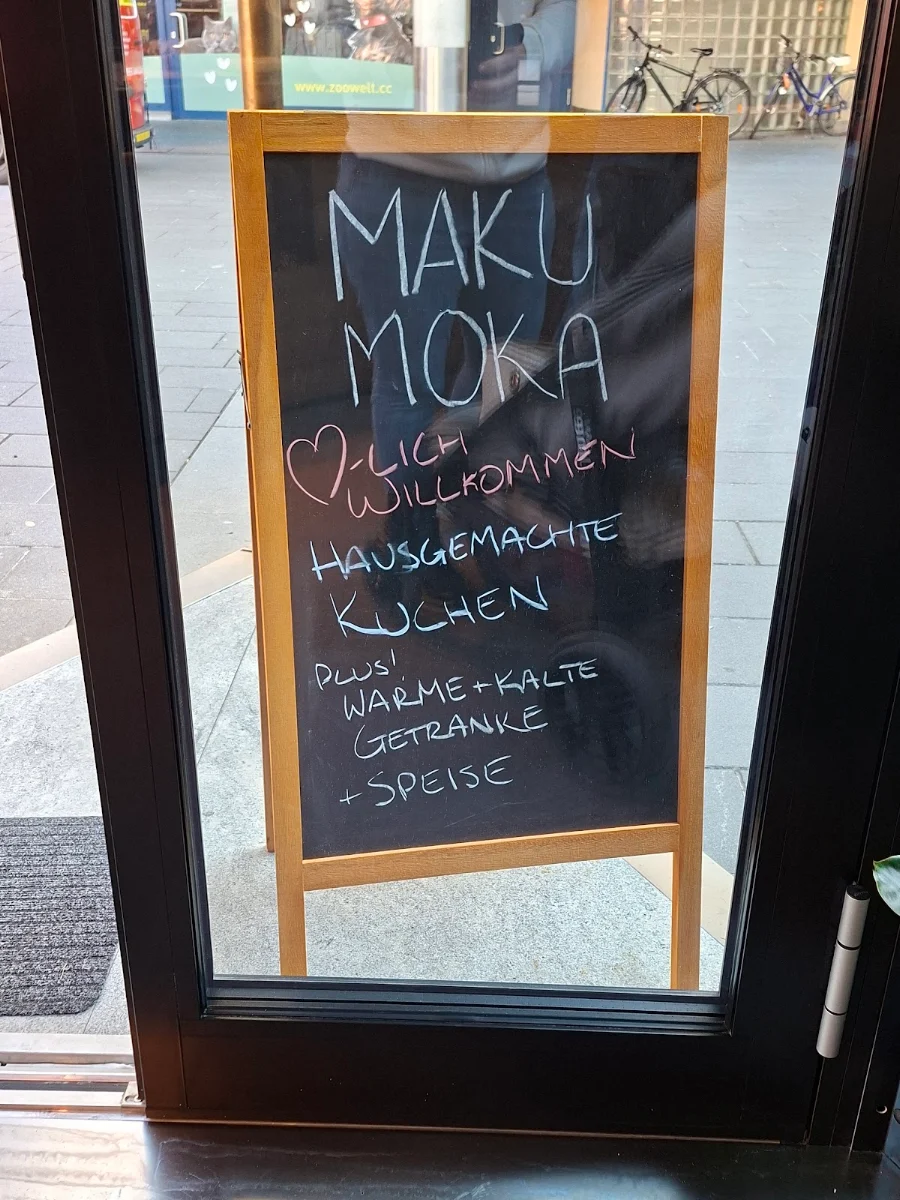 www.zoowelt.cc
MAKU
MOKA
♡-LICH
WILLKOMMEN
HAUSGEMACHTE
KUCHEN
PLUS!
WARME+KALTE
GETRANKE
+SPEISE